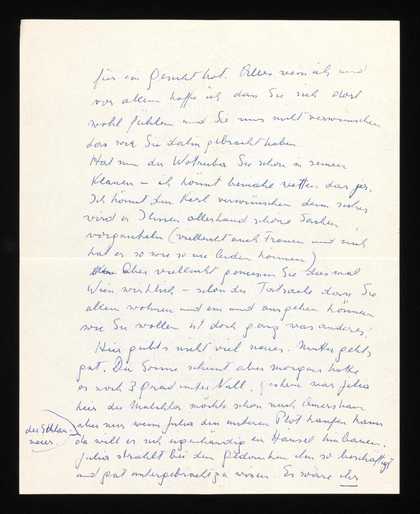 für ein Gesicht hat. Alles
vor allem hoffe ich dass Sie sich dort
wohl fühlen und Sie uns nicht verwünschen
dass wir Sie dahin gebracht haben.
Hat nun der Sie schon in seinen
Klauen – ich könnt beinahe wetten, dass ja.
Ich könnt den Kerl verwünschen denn sicher
wird er Ihnen allerhand schöne Sachen
vorgaukeln (vielleicht auch Frauen und mich
hat er so wie so nie leiden können)
Aber vielleicht geniessen Sie diesmal
Wien wirklich – schon die Tatsache dass Sie
allein wohnen und ein und ausgehen können
wie Sie wollen ist doch ganz was anderes!
Hier gibts nicht viel neues. Mutter gehts
gut. Die Sonne scheint aber morgens hatte
es noch 3 grad unter Null. gestern war Julia
hier der möchte schon nach
aber nur wenn Julia den anderen Plot kaufen kann
da will er sich eigenhändig ein Häusel hin bauen.
Julia strahlt bei dem Gedanken ihn so beschäftigt
und gut untergebracht zu wissen. Es wäre der